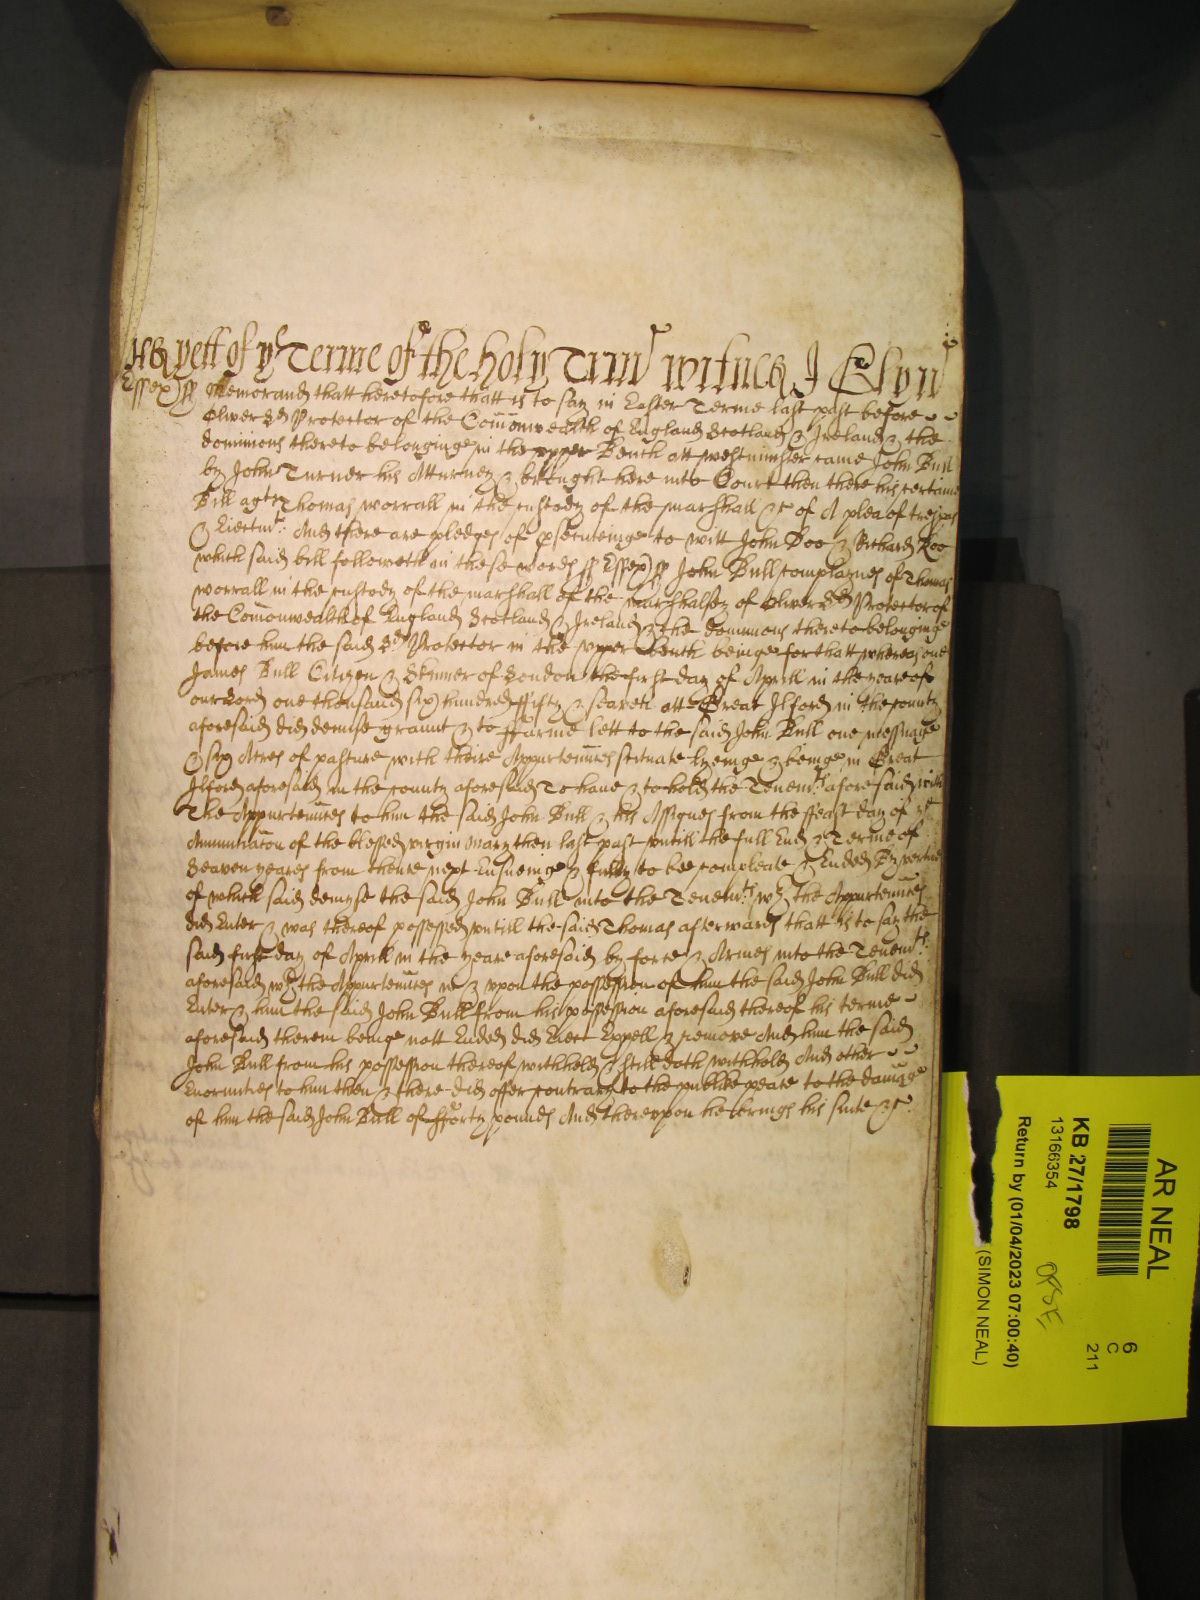 As yett of ye Terme of the holy Trin witnes J Glyn
Essex ss Memorand thatt heretofore thatt is to say in Easter Terme last past before
Oliver Ld Protector of the Comonwealth of England Scotland & Ireland & the
dominions thereto belonginge in the upper Bench att westminster came John Bull
by John Turner his Atturney & brought here into Court then there his certaine
Bill agt Thomas worrall in the custody of the marshall &c of A plea of trespas
& Eiectmt: And there are pledges of psecuteinge to witt John Doo & Richard Roo
which said bill followeth in these words ss Essex ss John Bull complaines of Thomas
worrall in the custody of the marshall of the marshalsey of Oliver Ld Protector of
the Comonwealth of England Scotland & Ireland & the dominions thereto belonginge
before him the said Ld Protector in the upper Bench beinge for thatt whereas one
James Bull Citizen & Skinner of London the first day of Aprill in the yeare of
our Lord one thousand six hundred ffifty & seaven att Great Ilford in the county
aforesaid did demise graunt & to ffarme lett to the said John Bull one messuage
& six Acres of pasture with theire Appurtennces scituate lyeinge & beinge in Great
Ilford aforesaid in the county aforesaid To have & to hold the Tenemts aforesaid with
The Appurtennces to him the said John Bull & his Assignes from the ffeast day of ye
Annuntiacon of the blessed virgin Mary then last past untill the full End & Terme of
Seaven yeares from thence next Ensueinge & fully to bee compleate & Ended By vertue
of which said demyse the said John Bull into the Tenemts wth the Appurtennces
did Enter & was thereof possessed untill the said Thomas afterwards thatt is to say the
said first day of Aprill in the yeare aforesaid by force & Armes into the Tenemts:
aforesaid wth the Appurtennces in & upon the possession of him the said John Bull did
Enter & him the said John Bull from his possession aforesaid thereof his terme
aforesaid therein beinge nott Ended did Eiect Expell & remove And him the said
John Bull from his possession thereof withheld & still doth withhold And other
Enormities to him then & there did offer contrary to the publike peace to the damage
of him the said John Bull of fforty pounds And thereupon he brings his suite &c:
AR NEAL
6
C
211
KB 27/1798
13166354
Return by (01/04/2023 07:00:40)
(SIMON NEAL)